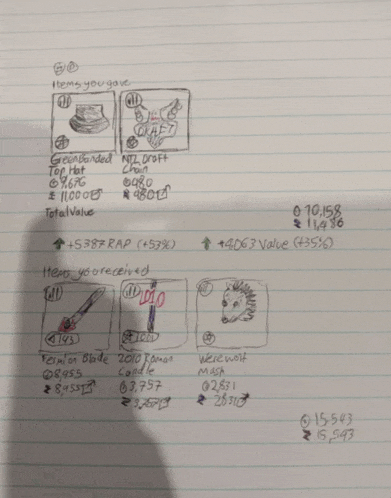 Items you gave
DRAFT
Green Banded Top Hat
9,676
11,000
NFL Draft Chain
480
480
Total Value
10,158
11,486
+5387 RAP (+53%)
+4,063 Value (+35%)
Items you received
2010
Fermion Blade
8,955
8,955
2010 Roman Candle
3,757
3,757
Werewolf Mask
2,831
2831
15,543
15,543